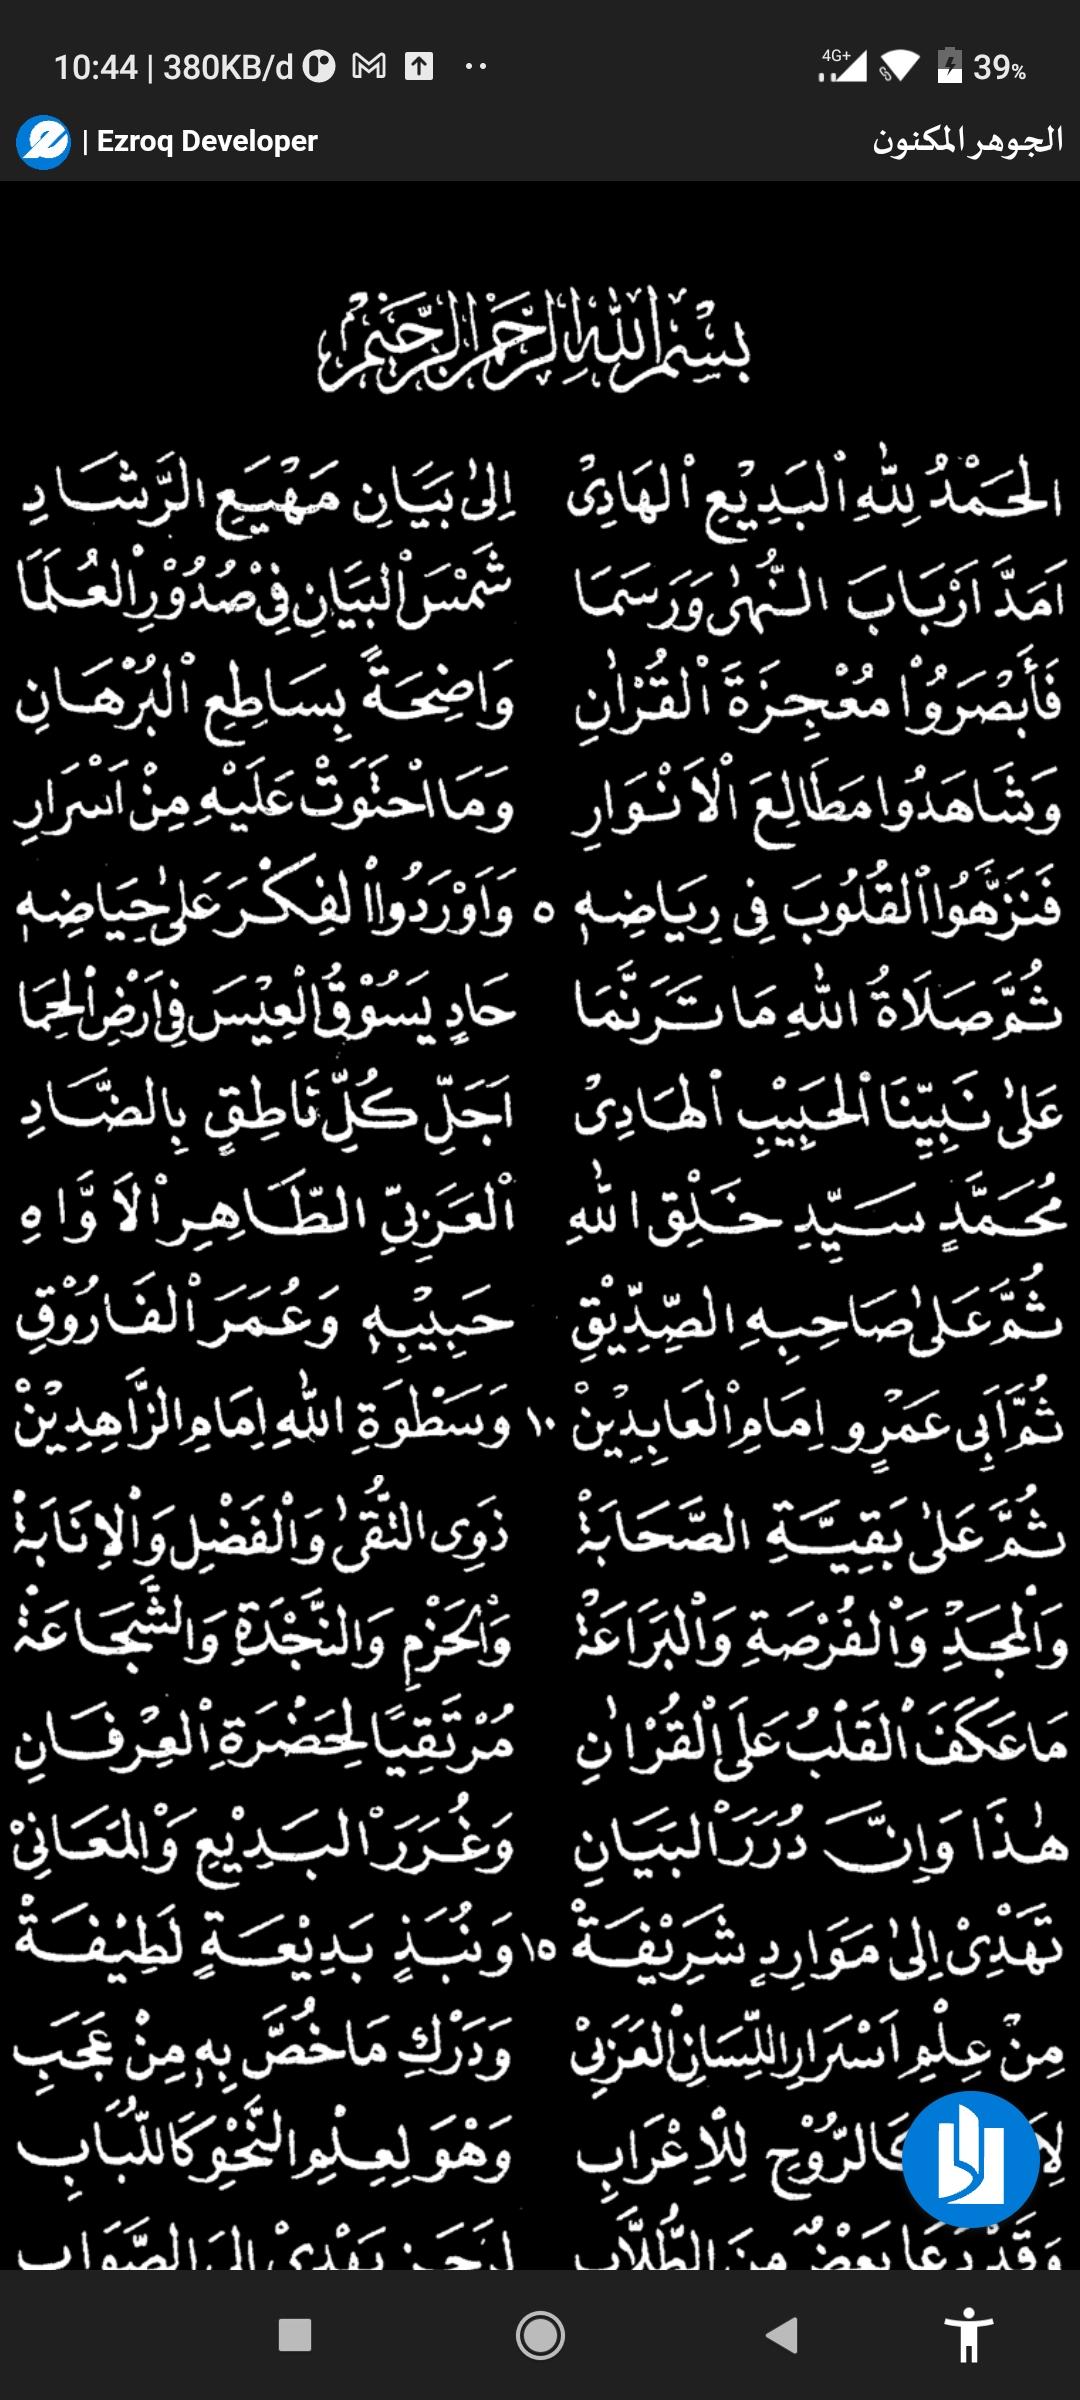 10:44 | 380KB/d 4G+ 39%
| Ezroq Developer الجوهر المكنون
بِسْمِ اللهِ الرَّحْمٰنِ الرَّحِيْمِ
الْحَمْدُ لِلّٰهِ الْبَدِيْعِ الْهَادِيْ اِلٰى بَيَانِ مَهْيَعِ الرَّشَادِ
اَمَدَّ اَرْبَابَ النُّهٰى وَرَسَمَا شَمْسَ الْبَيَانِ فِيْ صُدُوْرِ الْعُلَمَا
فَأَبْصَرُوْا مُعْجِزَةَ الْقُرْاٰنِ وَاضِحَةً بِسَاطِعِ الْبُرْهَانِ
وَشَاهَدُوا مَطَالِعَ الْاَنْوَارِ وَمَا احْتَوَتْ عَلَيْهِ مِنْ اَسْرَارِ
فَنَزَّهُوا الْقُلُوْبَ فِى رِيَاضِهٖ ٥ وَاَوْرَدُوا الْفِكْرَ عَلٰى حِيَاضِهٖ
ثُمَّ صَلَاةُ اللهِ مَا تَرَنَّمَا حَادٍ يَسُوْقُ الْعِيْسَ فِى اَرْضِ الْحِمَا
عَلٰى نَبِيِّنَا الْحَبِيْبِ الْهَادِيْ اَجَلِّ كُلِّ نَاطِقٍ بِالضَّادِ
مُحَمَّدٍ سَيِّدِ خَلْقِ اللهِ الْعَرَبِيِّ الطَّاهِرِ الْاَوَّاهِ
ثُمَّ عَلٰى صَاحِبِهِ الصِّدِّيْقِ حَبِيْبِهٖ وَعُمَرَ الْفَارُوْقِ
ثُمَّ اَبِى عَمْرٍو اِمَامِ الْعَابِدِيْنْ ١٠ وَسَطْوَةِ اللهِ اِمَامِ الزَّاهِدِيْنْ
ثُمَّ عَلٰى بَقِيَّةِ الصَّحَابَةْ ذَوِى التُّقٰى وَالْفَضْلِ وَالْاِنَابَةْ
وَالْمَجْدِ وَالْفُرْصَةِ وَالْبَرَاعَةْ وَالْحَزْمِ وَالنَّجْدَةِ وَالشَّجَاعَةْ
مَا عَكَفَ الْقَلْبُ عَلَى الْقُرْاٰنِ مُرْتَقِيًا لِحَضْرَةِ الْعِرْفَانِ
هٰذَا وَاِنَّ دُرَرَ الْبَيَانِ وَغُرَرَ الْبَدِيْعِ وَالْمَعَانِيْ
تَهْدِيْ اِلٰى مَوَارِدٍ شَرِيْفَةْ ١٥ وَنُبَذٍ بَدِيْعَةٍ لَطِيْفَةْ
مِنْ عِلْمِ اَسْرَارِ اللِّسَانِ الْعَرَبِيْ وَدَرْكِ مَا خُصَّ بِهٖ مِنْ عَجَبِ
كَالرُّوْحِ لِلْاِعْرَابِ وَهْوَ لِعِلْمِ النَّحْوِ كَاللُّبَابِ
وَقَدْ دَعَا بَعْضٌ مِنَ الطُّلَّابِ يَهْدِيْ اِلَى الصَّوَابِ